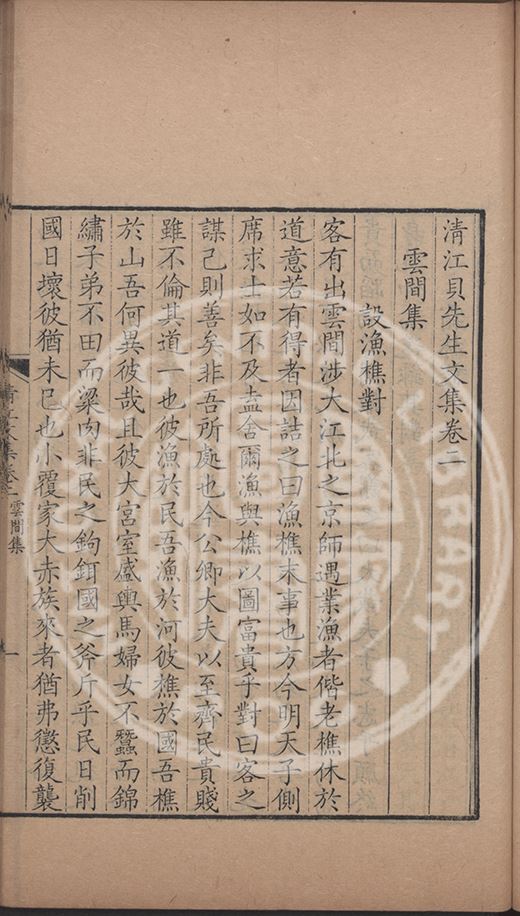 清江貝先生文集卷二
雲間集
設漁樵對
客有出雲間涉大江北之京師遇業漁者偕老樵休於
道意若有得者因詰之曰漁樵末事也方今明天子側
席求士如不及盍舍爾漁與樵以圖富貴乎對曰客之
謀己則善矣非吾所處也今公卿大夫以至齊民貴賤
雖不倫其道一也彼漁於民吾漁於河彼樵於國吾樵
於山吾何異彼哉且彼大宮室盛輿馬婦女不蠶而錦
繡子弟不田而粱肉非民之鉤鉺國之斧斤乎民日削
國日壞彼猶未已也小覆家大赤族來者猶弗懲復襲
雲間集
一